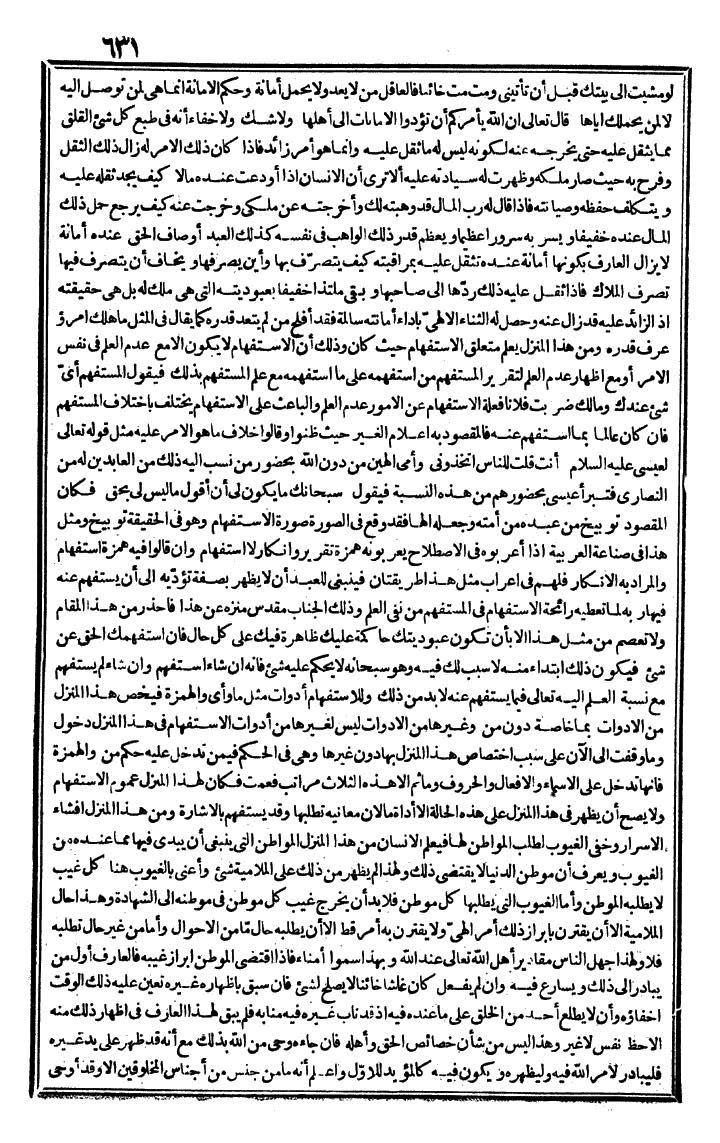 ٦٣١
لو مشيت الى بيتك قبل أن تأتيني ومت مت خائنا فالعاقل من لا يعد ولا يحمل أمانة وحكم الامانة انماهي لمن توصل اليه
لا لمن يحملك اياها قال تعالى ان الله يأمركم أن تؤدوا الامانات الى أهلها ولا شك ولا خفاء أنه فى طبع كل شئ القلق
مما يثقل عليه حتى يخرجه عنه لكونه ليس له ما ثقل عليه وانما هو أمر زائد فاذا كان ذلك الامر له زال ذلك الثقل
وفرح به حيث صار ملكه وظهرت له سيادته عليه ألا ترى أن الانسان اذا أودعت عنده مالا كيف يجد ثقله عليه
ويتكلف حفظه وصيانته فاذا قال له رب المال قد وهبته لك وأخرجته عن ملكى وخرجت عنه كيف يرجع حمل ذلك
المال عنده خفيفا ويسر به سرورا عظيما ويعظم قدر ذلك الواهب فى نفسه كذلك العبد أوصاف الحق عنده أمانة
لا يزال العارف بكونها أمانة عنده تثقل عليه بمراقبته كيف يتصرّف بها وأين يصرفها ويخاف أن يتصرف فيها
تصرف الملاك فاذا ثقل عليه ذلك ردّها الى صاحبها وبقى ملتذا خفيفا بعبوديته التى هى ملك له بل هى حقيقته
اذ الزائد عليه قد زال عنه وحصل له الثناء الالهىّ باداء أمانته سالمة فقد أفلح من لم يتعد قدره كما يقال فى المثل ما هلك امرؤ
عرف قدره ومن هذا المنزل يعلم متعلق الاستفهام حيث كان وذلك أن الاستفهام لا يكون الا مع عدم العلم فى نفس
الامر أو مع اظهار عدم العلم لتقرير المستفهم من استفهمه على ما استفهمه مع علم المستفهم بذلك فيقول المستفهم أىّ
شئ عندك ومالك ضربت فلانا فعلة الاستفهام عن الامور عدم العلم والباعث على الاستفهام يختلف باختلاف المستفهم
فان كان عالما بما استفهم عنه فالمقصود به اعلام الغير حيث ظنوا وقالوا خلاف ما هو الامر عليه مثل قوله تعالى
لعيسى عليه السلام أأنت قلت للناس اتخذونى وأمى الهين من دون الله بحضور من نسب اليه ذلك من العابدين له من
النصارى فتبرأ عيسى بحضورهم من هذه النسبة فيقول سبحانك ما يكون لى أن أقول ما ليس لى بحق فكان
المقصود توبيخ من عبده من أمته وجعله الها فقد وقع فى الصورة صورة الاستفهام وهو فى الحقيقة توبيخ ومثل
هذا فى صناعة العربية اذا أعربوه فى الاصطلاح يعربونه همزة تقرير وانكار لا استفهام وان قالوا فيه همزة استفهام
والمراد به الانكار فلهم فى اعراب مثل هذا طريقتان فينبغى للعبد أن لا يظهر بصفة تؤدّيه الى أن يستفهم عنه
فيها ربه لما تعطيه رائحة الاستفهام فى المستفهم من نفى العلم وذلك الجناب مقدس منزه عن هذا فاحذر من هذا المقام
ولا تعصم من مثل هذا الا بأن تكون عبوديتك حاكمة عليك ظاهرة فيك على كل حال فان استفهمك الحق عن
شئ فيكون ذلك ابتداء منه لا سبب لك فيه وهو سبحانه لا يحكم عليه شئ فانه ان شاء استفهم وان شاء لم يستفهم
مع نسبة العلم اليه تعالى فيما يستفهم عنه لا بد من ذلك وللاستفهام أدوات مثل ما وأى والهمزة فيخص هذا المنزل
من الادوات بما خاصة دون من وغيرها من الادوات ليس لغيرها من أدوات الاستفهام فى هذا المنزل دخول
وما وقفت الى الآن على سبب اختصاص هذا المنزل بها دون غيرها وهى فى الحكم فيمن تدخل عليه حكم من والهمزة
فانها تدخل على الاسماء والافعال والحروف وما ثم الا هذه الثلاث مراتب فعمت فكان لهذا المنزل عموم الاستفهام
ولا يصح أن يظهر فى هذا المنزل على هذه الحالة الا أداة ما لان معانيه تطلبها وقد يستفهم بالاشارة ومن هذا المنزل افشاء
الاسرار وخفى الغيوب لطلب المواطن لها فيعلم الانسان من هذا المنزل المواطن التى ينبغى أن يبدى فيها مما عنده من
الغيوب ويعرف أن موطن الدنيا لا يقتضى ذلك ولهذا لم يظهر من ذلك على الملامية شئ وأعنى بالغيوب هنا كل غيب
لا يطلبه الموطن وأما الغيوب التى يطلبها كل موطن فلا بد أن يخرج غيب كل موطن فى موطنه الى الشهادة وهذا حال
الملامية الا أن يقترن بابراز ذلك أمر الهىّ ولا يقترن به أمر قط الا أن يطلبه حال مّا من الاحوال وأما من غير حال تطلبه
فلا ولهذا جهل الناس مقادير أهل الله تعالى عند الله وبهذا سموا أمناء فاذا اقتضى الموطن ابراز غيبه فالعارف أول من
يبادر الى ذلك ويسارع فيه وان لم يفعل كان غاشا خائنا لا يصلح لشئ فان سبق باظهاره غيره تعين عليه ذلك الوقت
اخفاؤه وأن لا يطلع أحد من الخلق على ما عنده فيه اذ قد ناب غيره فيه منابه فلم يبق لهذا العارف فى اظهار ذلك منه
الا حظ نفس لا غير وهذا ليس من شأن خصائص الحق وأهله فان جاءه وحى من الله بذلك مع أنه قد ظهر على يد غيره
فليبادر لأمر الله فيه وليظهره ويكون فيه كالمؤيد للاوّل واعلم أنه ما من جنس من أجناس المخلوقين الا وقد أوحى